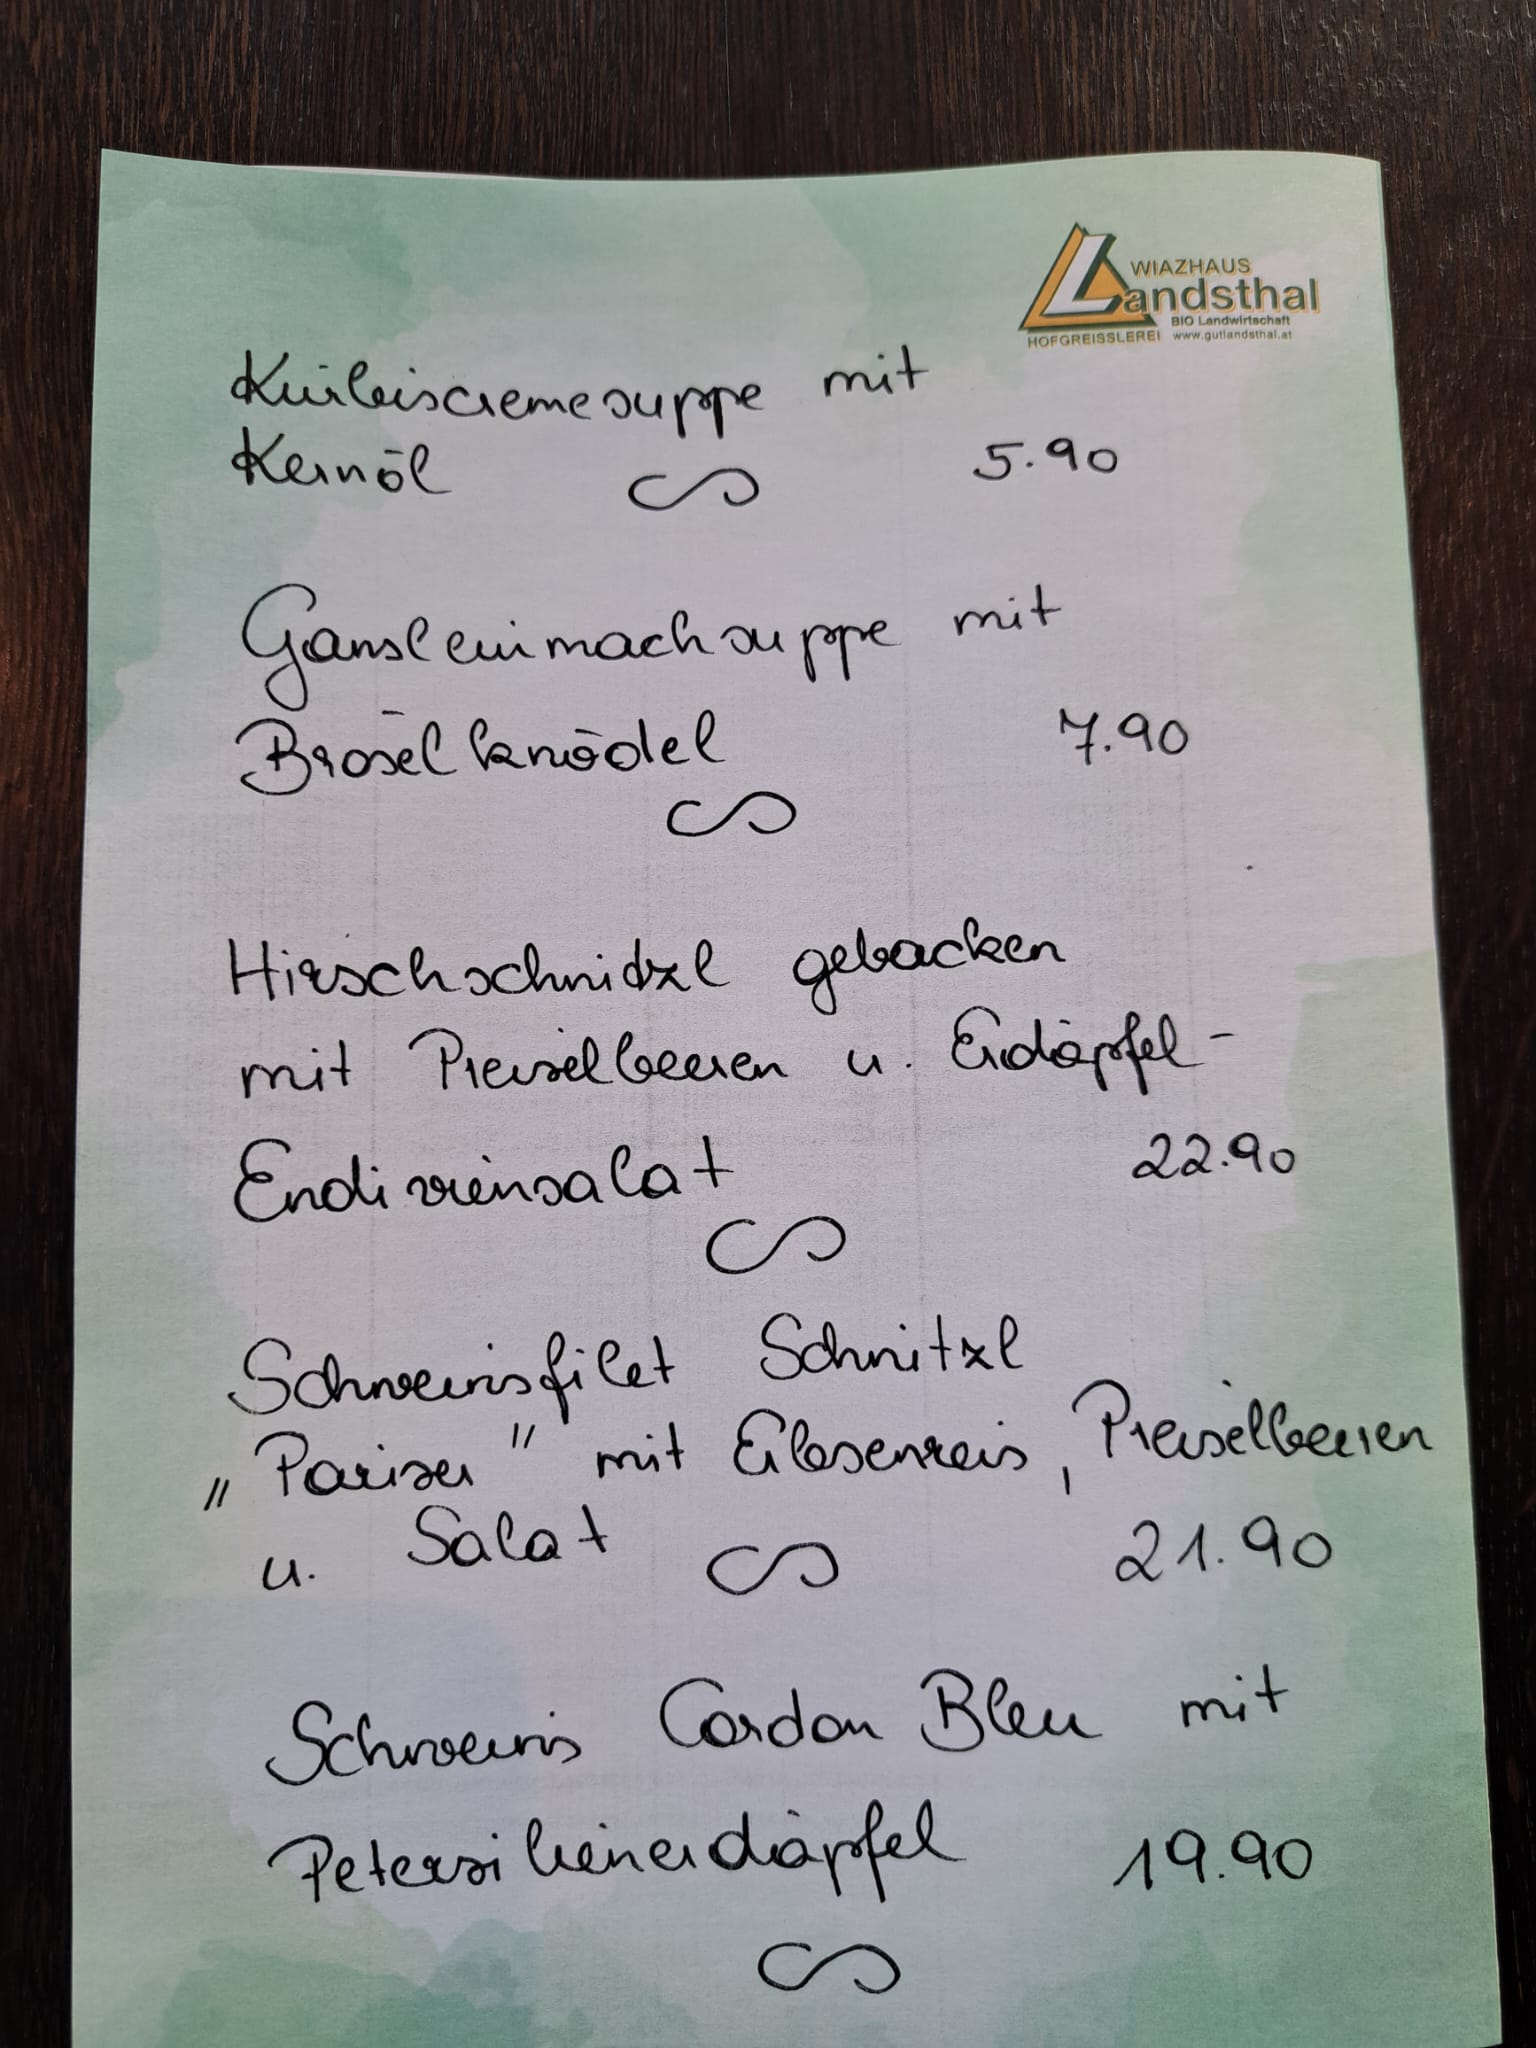 WIAZHAUS
Landsthal
BIO Landwirtschaft
HOFGREISSLEREI www.gutlandsthal.at
Kürbiscremesuppe mit
Kernöl 5.90
Gansleinmachsuppe mit
Bröselknödel 7.90
Hirschschnitzl gebacken
mit Preiselbeeren u. Erdäpfel-
Endiviensalat 22.90
Schweinsfilet Schnitzl
„Pariser" mit Erbsenreis, Preiselbeeren
u. Salat 21.90
Schweins Cordon Bleu mit
Petersilienerdäpfel 19.90